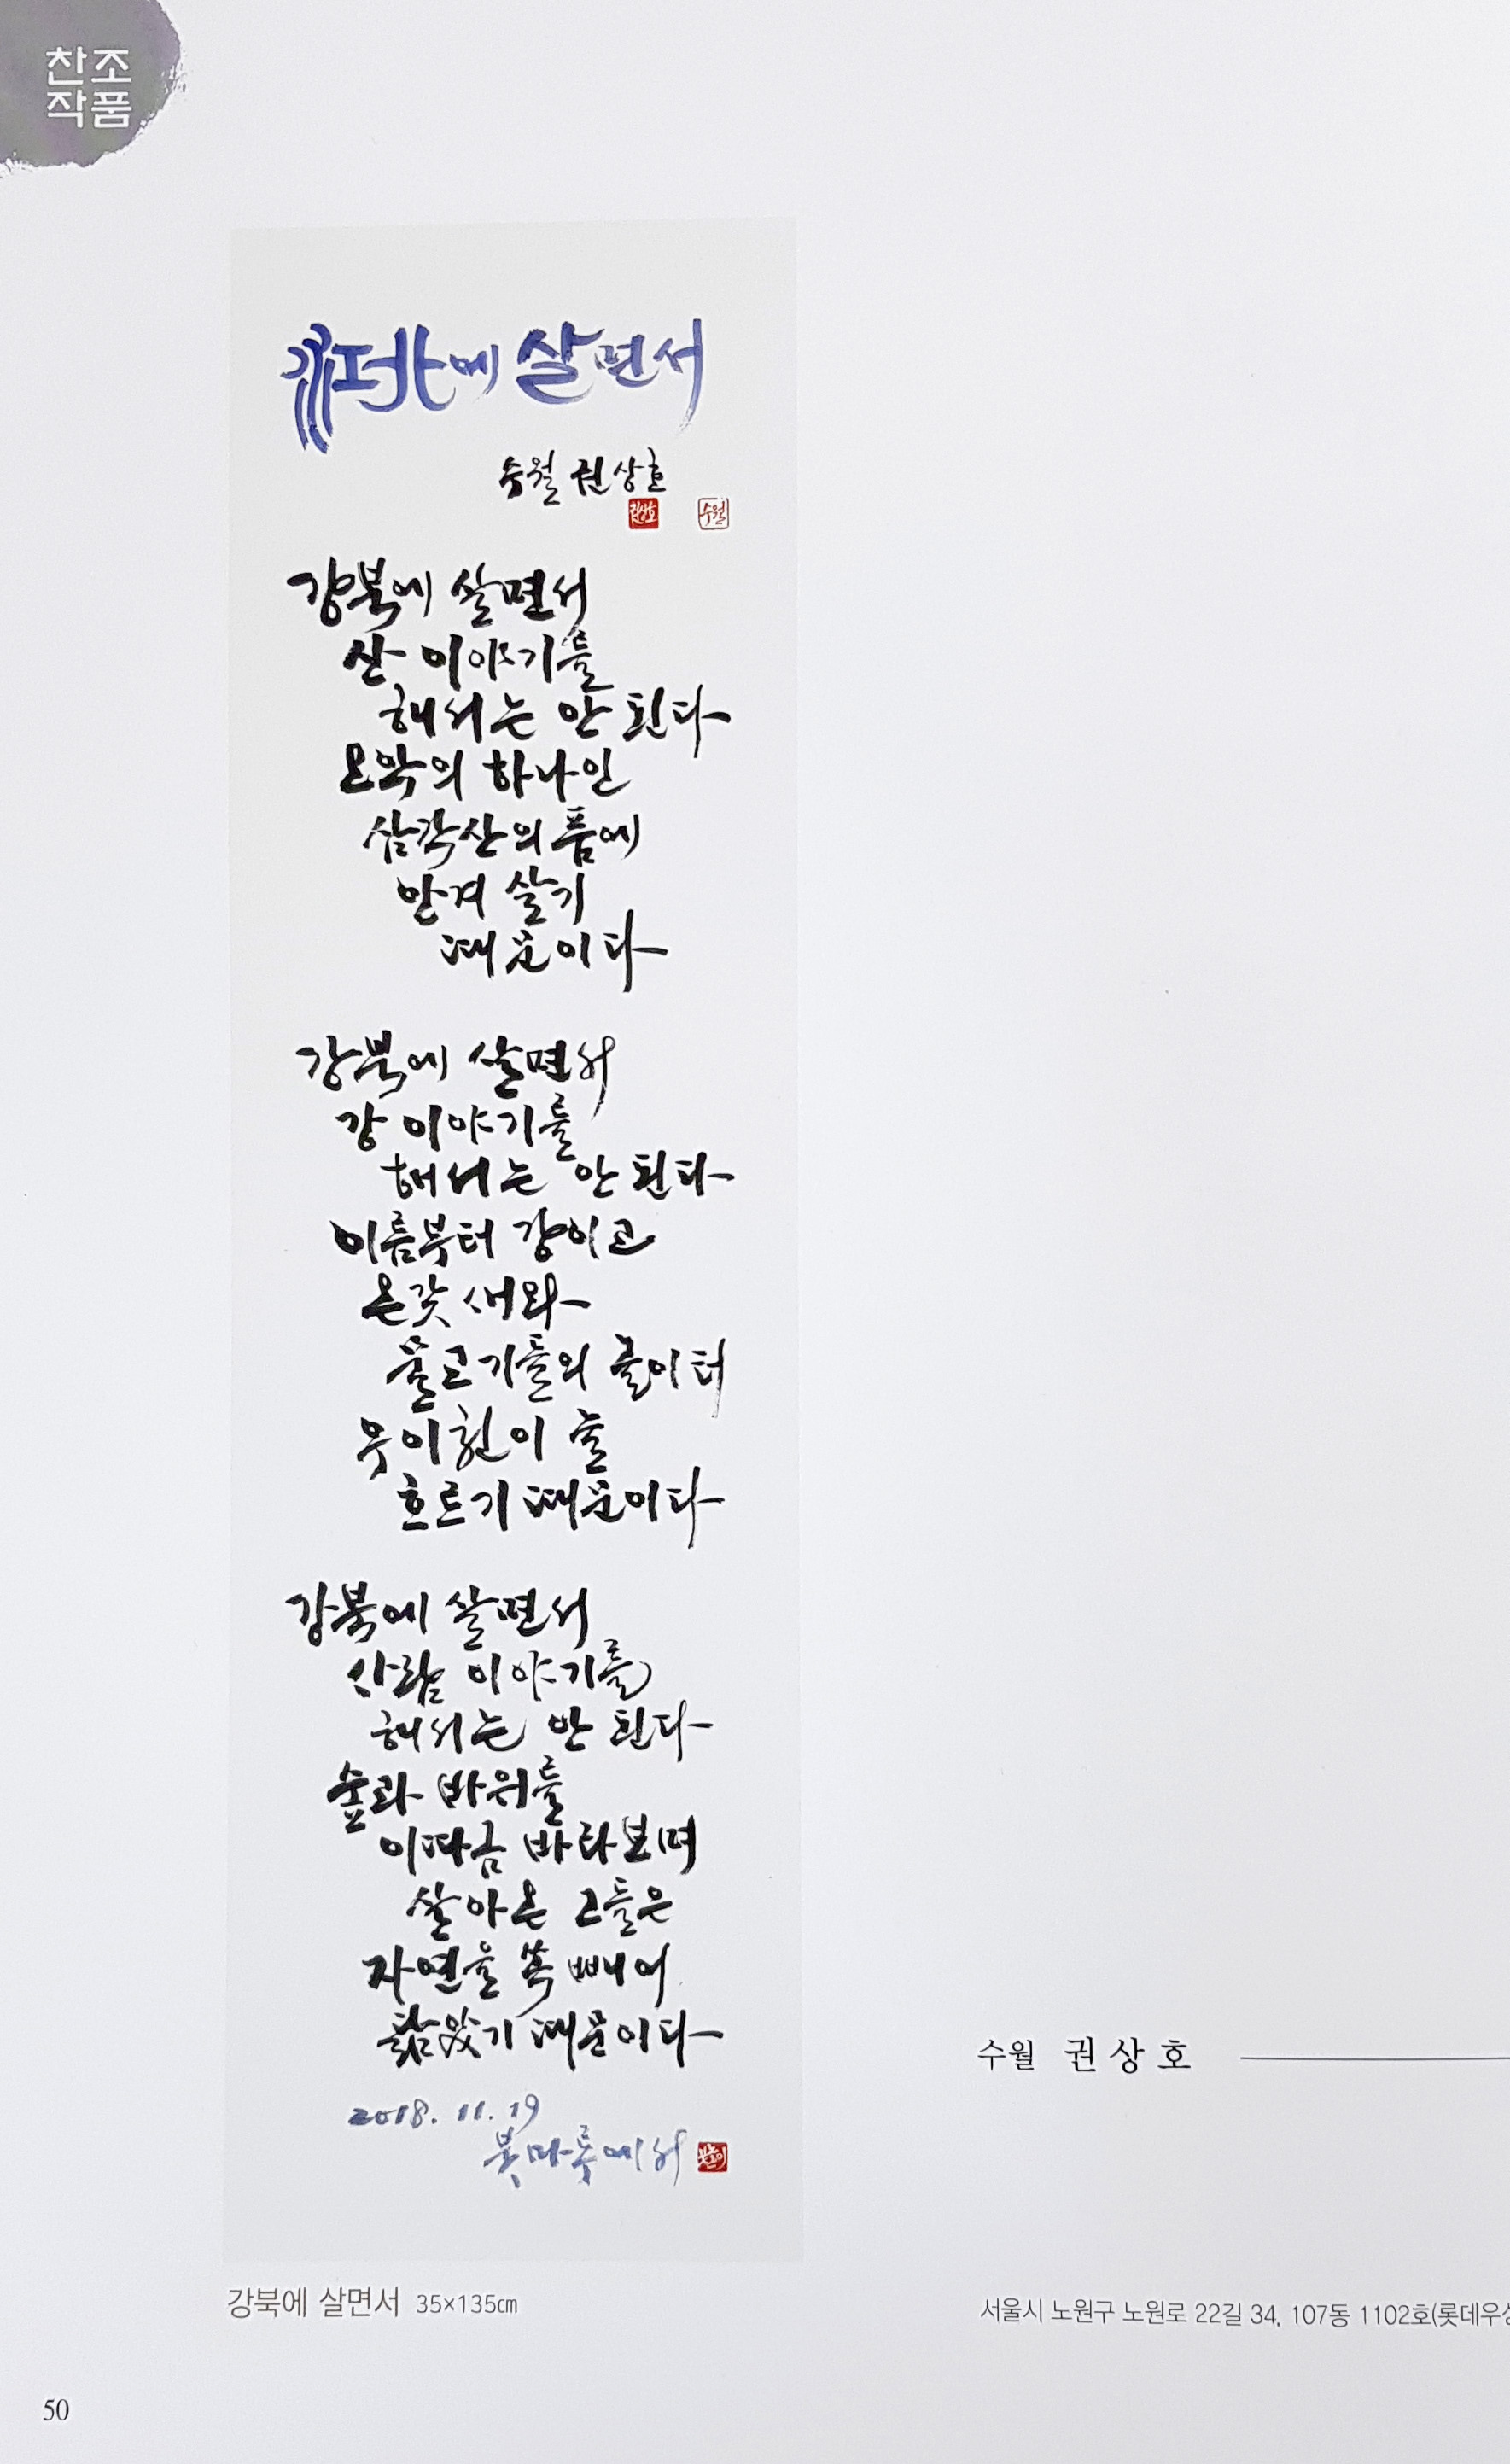 찬조
작품
江北에 살면서
수월 권상호
권상호
수월
강북에 살면서
산 이야기를
해서는 안 된다
오악의 하나인
삼각산의 품에
안겨 살기
때문이다
강북에 살면서
강 이야기를
해서는 안 된다
이름부터 강이고
온갖 새와
물고기들의 놀이터
우이천이 늘
흐르기 때문이다
강북에 살면서
사람 이야기를
해서는 안 된다
숲과 바위를
이따금 바라보며
살아온 그들은
자연을 쏙 빼어
닮았기 때문이다
2018. 11. 19
붓마루에서
수월 권상호
강북에 살면서 35×135㎝
서울시 노원구 노원로 22길 34, 107동 1102호(롯데우성
50